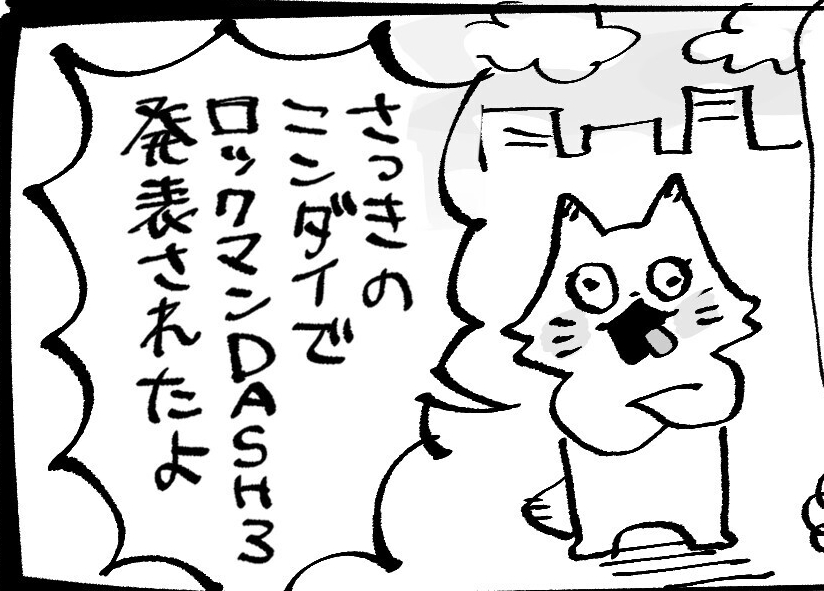 さっきの
ニンダイで
ロックマンDASH3
発表されたよ